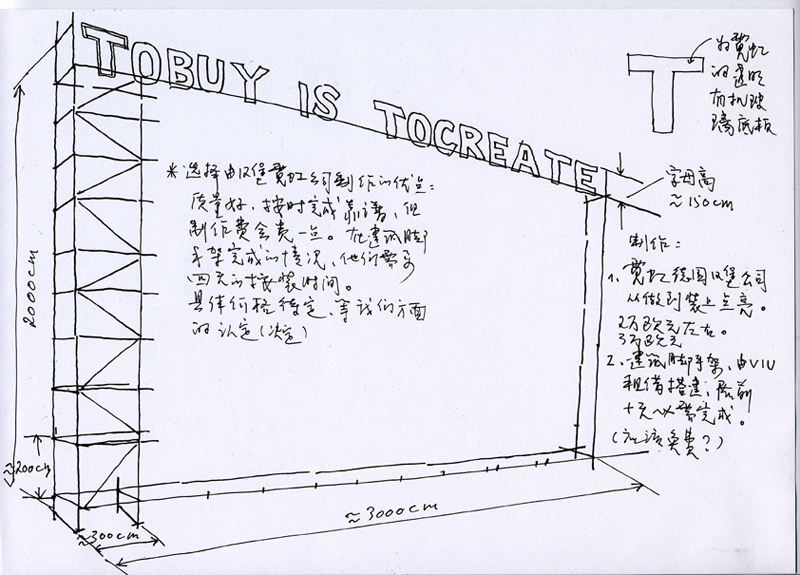 TOBUY IS TOCREATE
T
为霓虹
的透明
有机玻
璃底板
*选择由汉堡霓虹公司制作的优点:
质量好,按时完成靠谱,但
制作费会贵一点。在建筑脚
手架完成的情况,他们需要
四天的按装时间。
具体价格待定,等我们方面
的认定(决定)
字母高
≈150cm
制作:
1. 霓虹德国汉堡公司
从做到装上点亮。
2万欧元左右。
3万欧元
2. 建筑脚手架,由VIU
租借搭建,展前
十天必需完成。
(应该免费?)
2000cm
≈200cm
≈300cm
≈3000cm